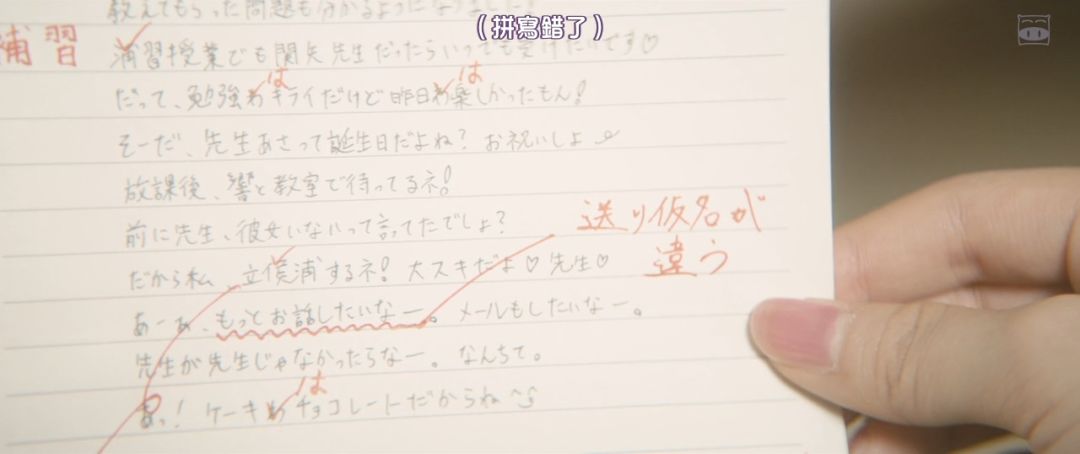 （拼寫錯了）
教えてもらった問題も分かるようになりました
補習
浦習授業でも関矢先生だったらいつでも受けたいです♡
は は
だって、勉強わキライだけど昨日わ楽しかったもん！
そーだ、先生あさって誕生日だよね？お祝いしよ
放課後、響と教室で待ってるネ！
前に先生、彼女いないって言ってたでしょ？
送り仮名が
違う
だから私、立候浦するネ！大スキだよ♡先生♡
あーあ、もっとお話したいなー。メールもしたいなー。
先生が先生じゃなかったらなー。なんちて。
は
あっ！ケーキわチョコレートだからね